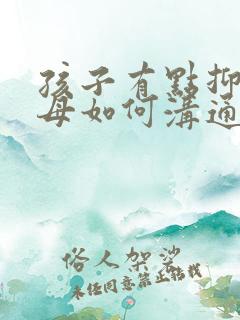 孩子有點抑
母如何溝通
俗人架娑
未任同意禁止转载